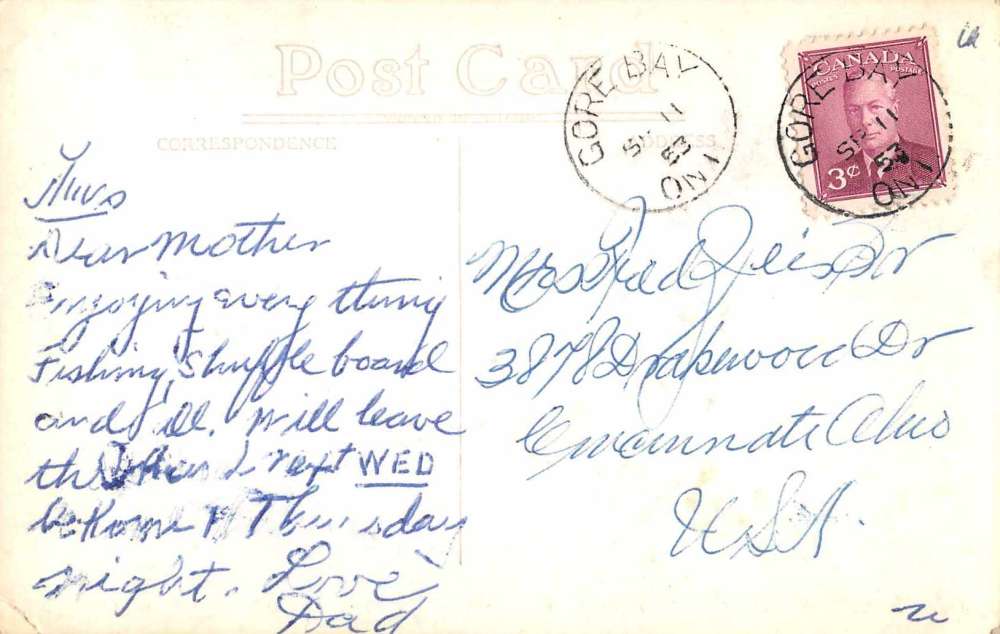 Post Card
CORRESPONDENCE
ADDRESS
GORE BAY
SP 11
53
ONT
CANADA
POSTES POSTAGE
3¢
GORE BAY
SP 11
53
ONT
Thurs
Dear Mother
Enjoying every thing
Fishing, Shuffle board
and all. Will leave
the Island next WED
be Home Thursday
night. Love
Dad
Mrs Fred Geis Sr
3878 Drakewood Dr
Cincinnati Ohio
USA.